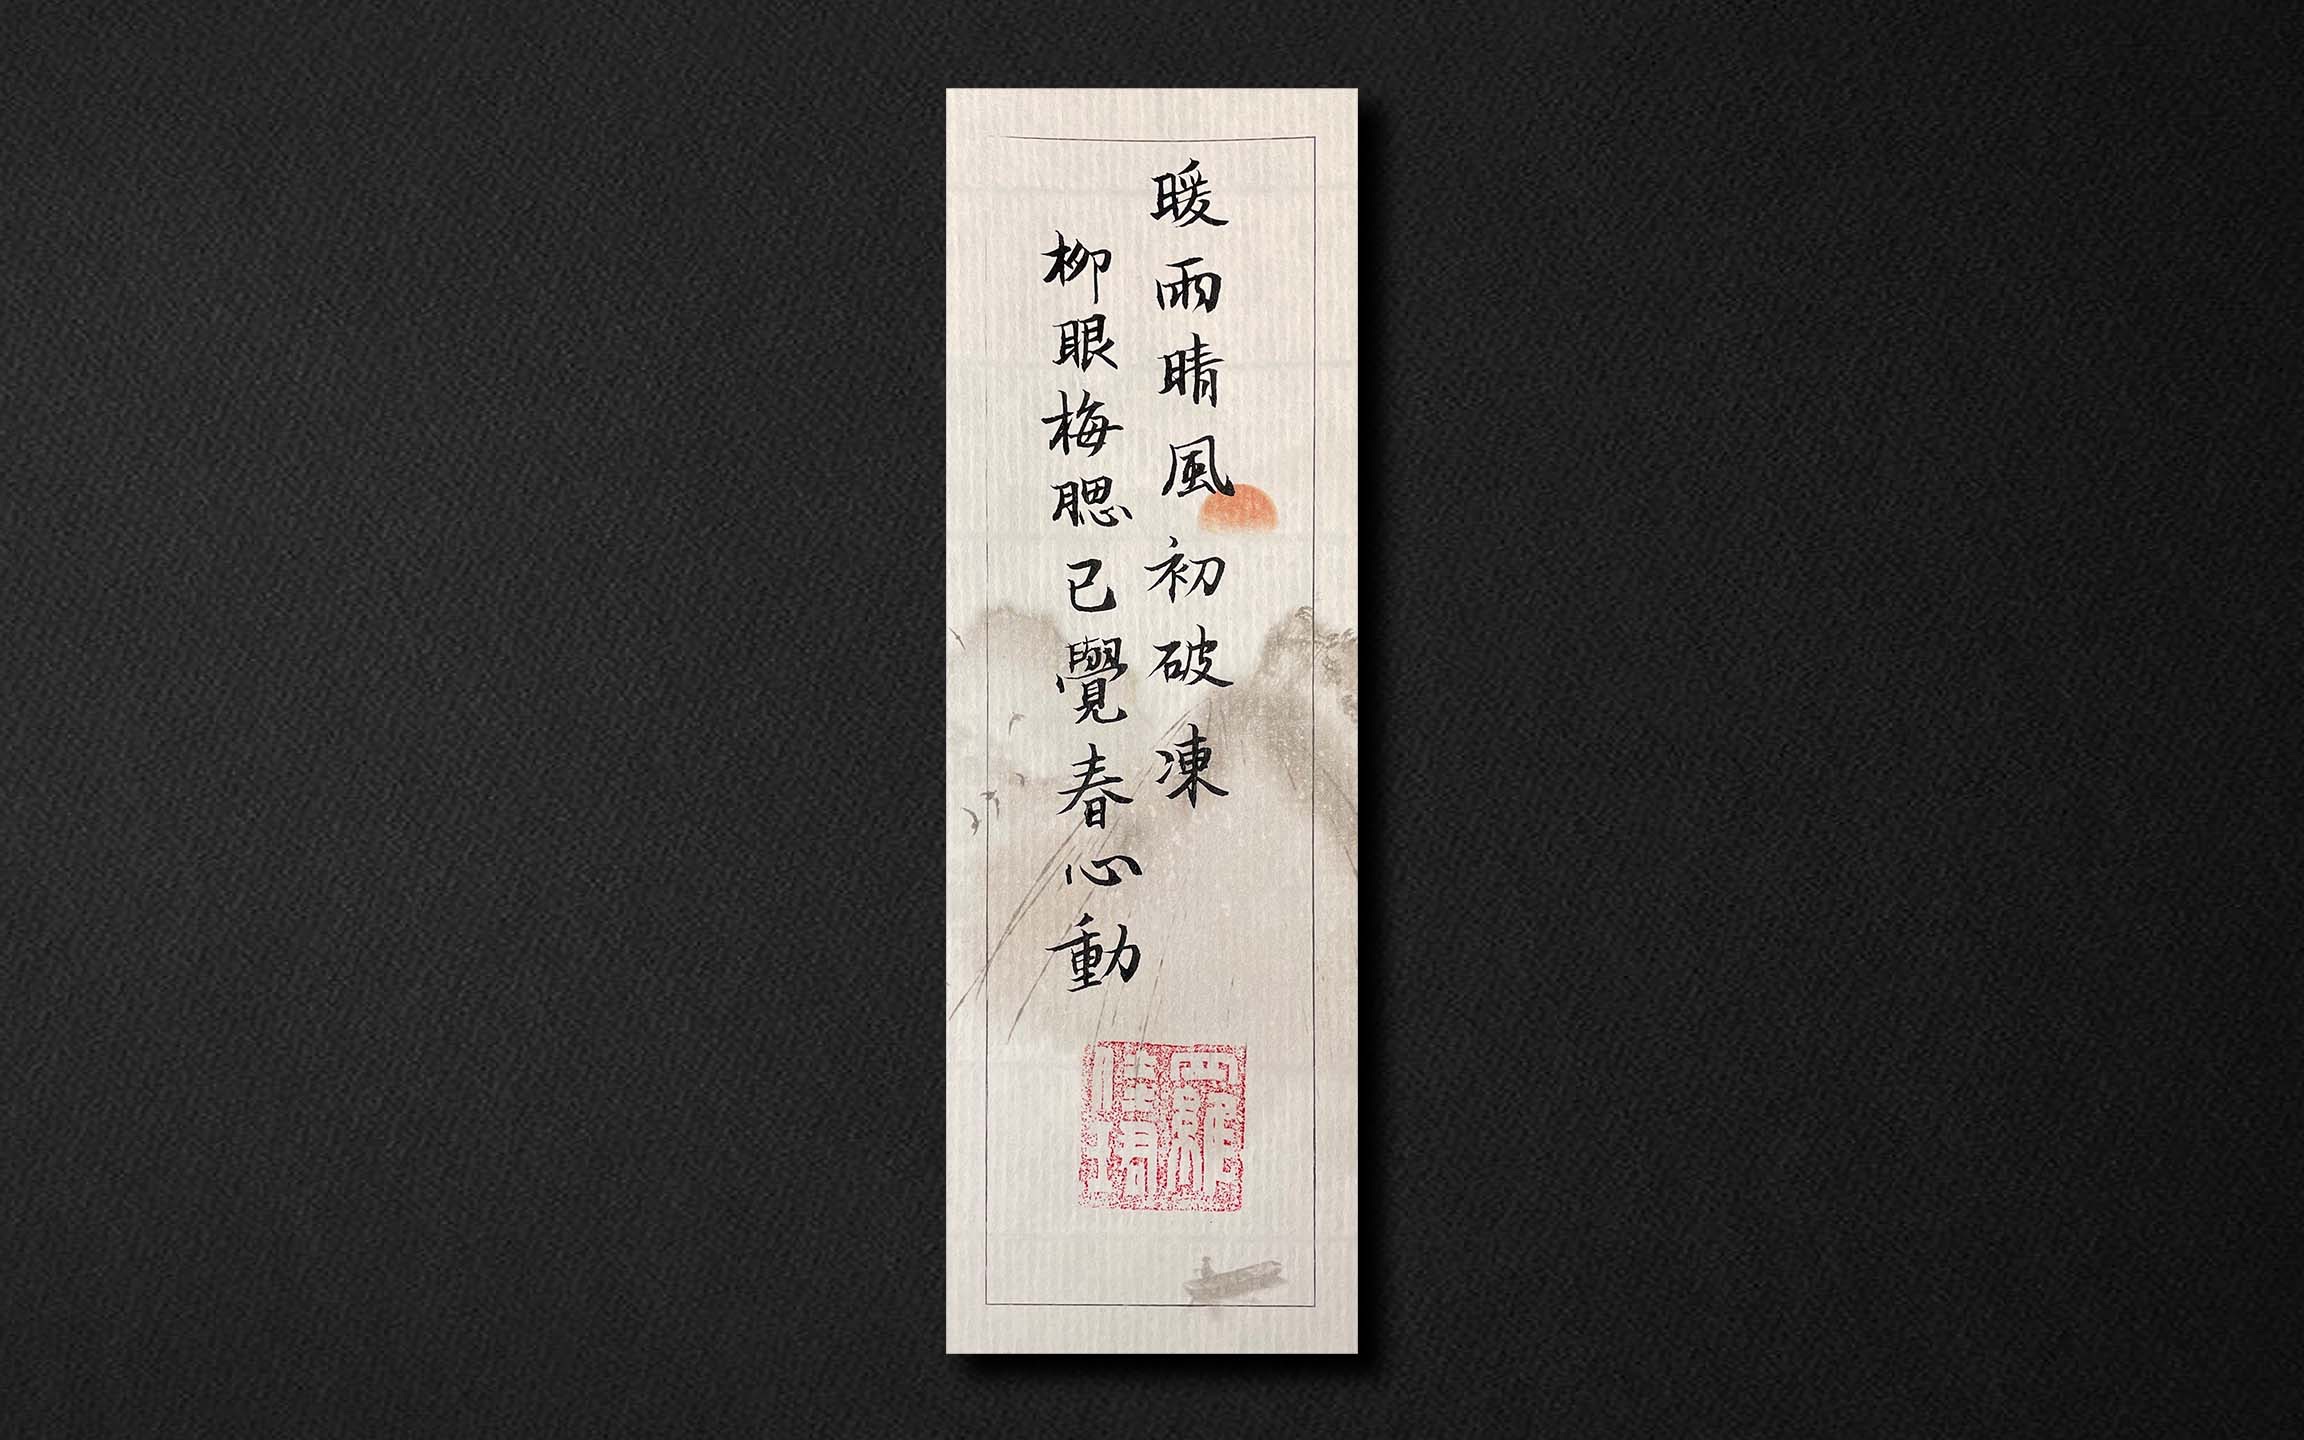 暖雨晴風初破凍
柳眼梅腮已覺春心動
羅佳